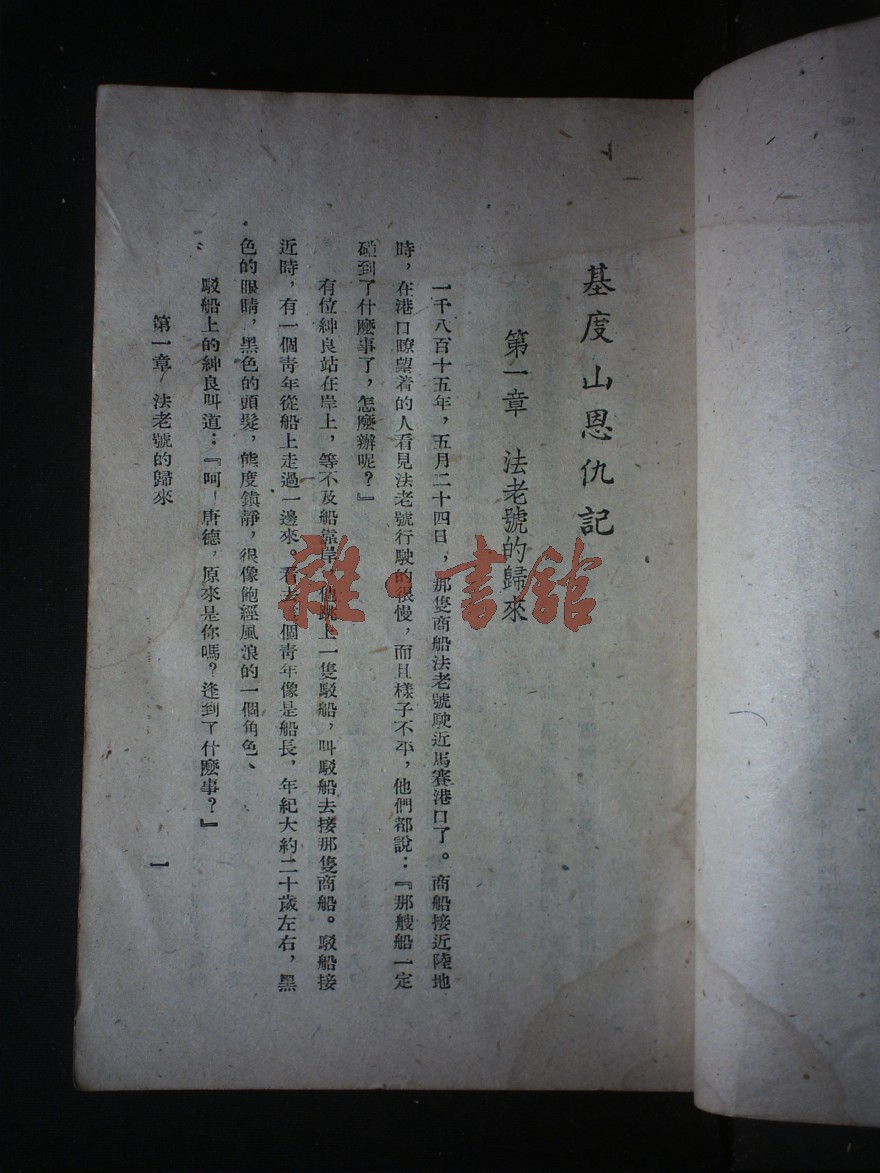 基度山恩仇記
第一章 法老號的歸來
一千八百十五年，五月二十四日，那隻商船法老號駛近馬賽港口了。商船接近陸地
時，在港口瞭望着的人看見法老號行駛的很慢，而且樣子不平，他們都說：『那艘船一定
碰到了什麼事了，怎麼辦呢？』
有位紳良站在岸上，等不及船靠岸，他跳上一隻駁船，叫駁船去接那隻商船。駁船接
近時，有一個靑年從船上走過一邊來。看去這個靑年像是船長，年紀大約二十歲左右，黑
色的眼睛，黑色的頭髮，態度鎮靜，很像飽經風浪的一個角色、
駁船上的紳良叫道：『呵！唐德，原來是你嗎？逢到了什麼事？』
第一章 法老號的歸來
一
雜·書館